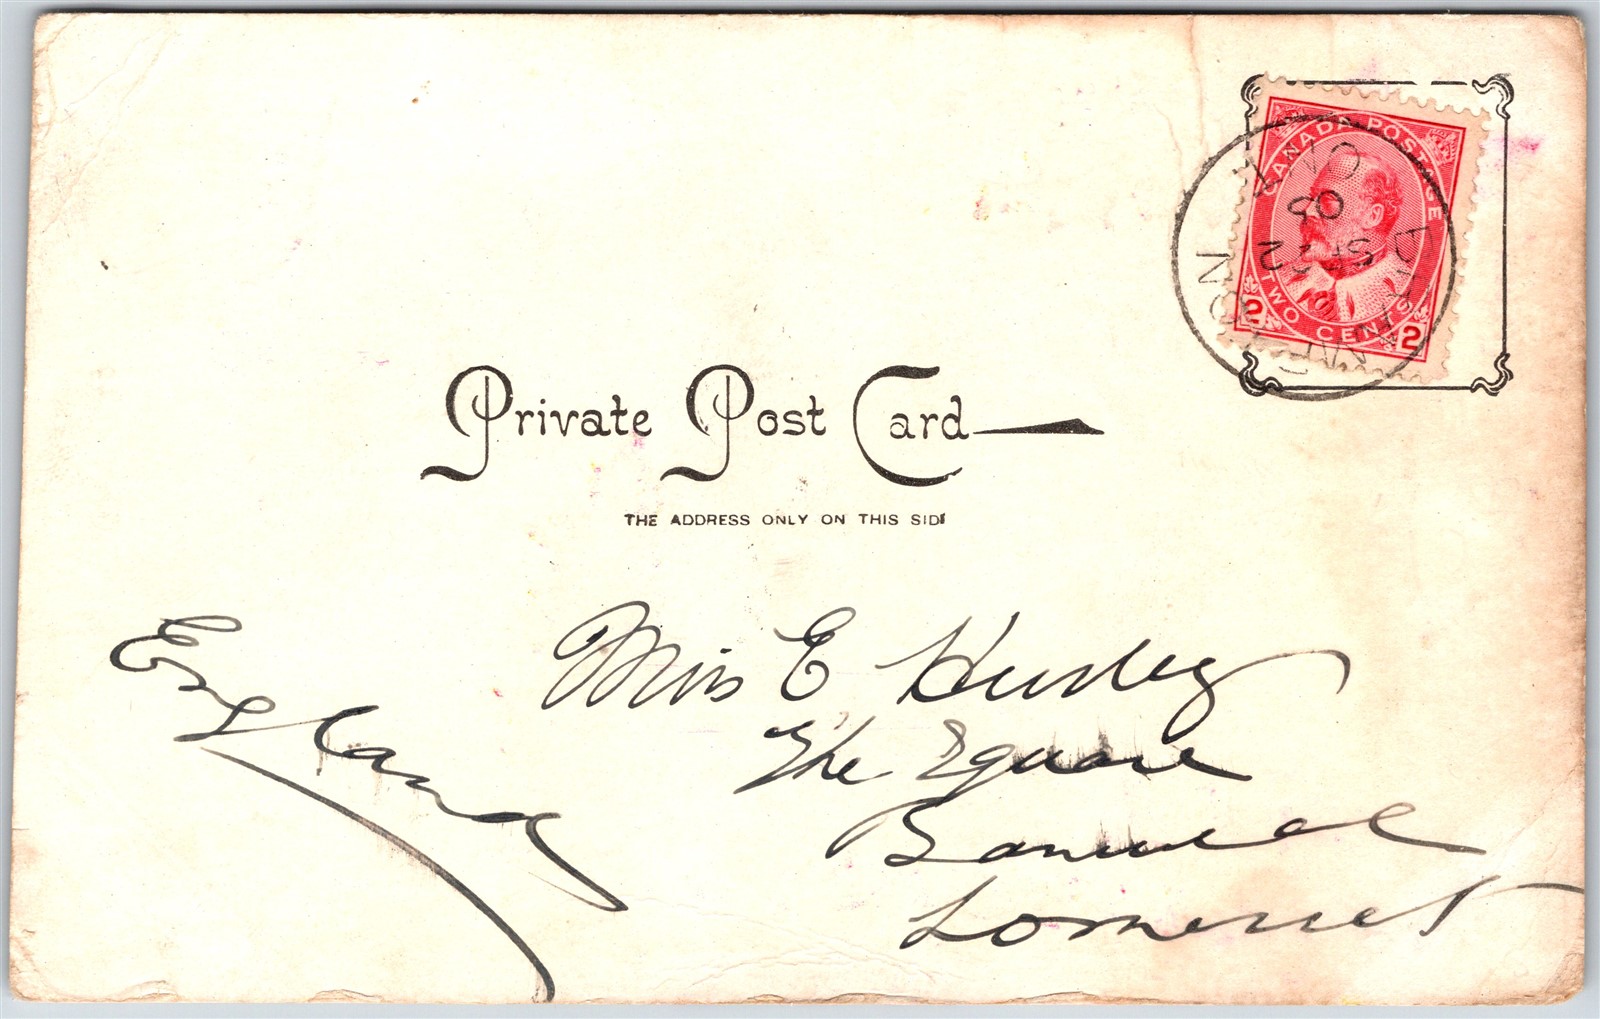 CANADA POSTAGE
TWO CENTS
2 2
ONT
SP 22
Private Post Card
THE ADDRESS ONLY ON THIS SIDE
Miss E
The Square
Banwell
Somerset
England